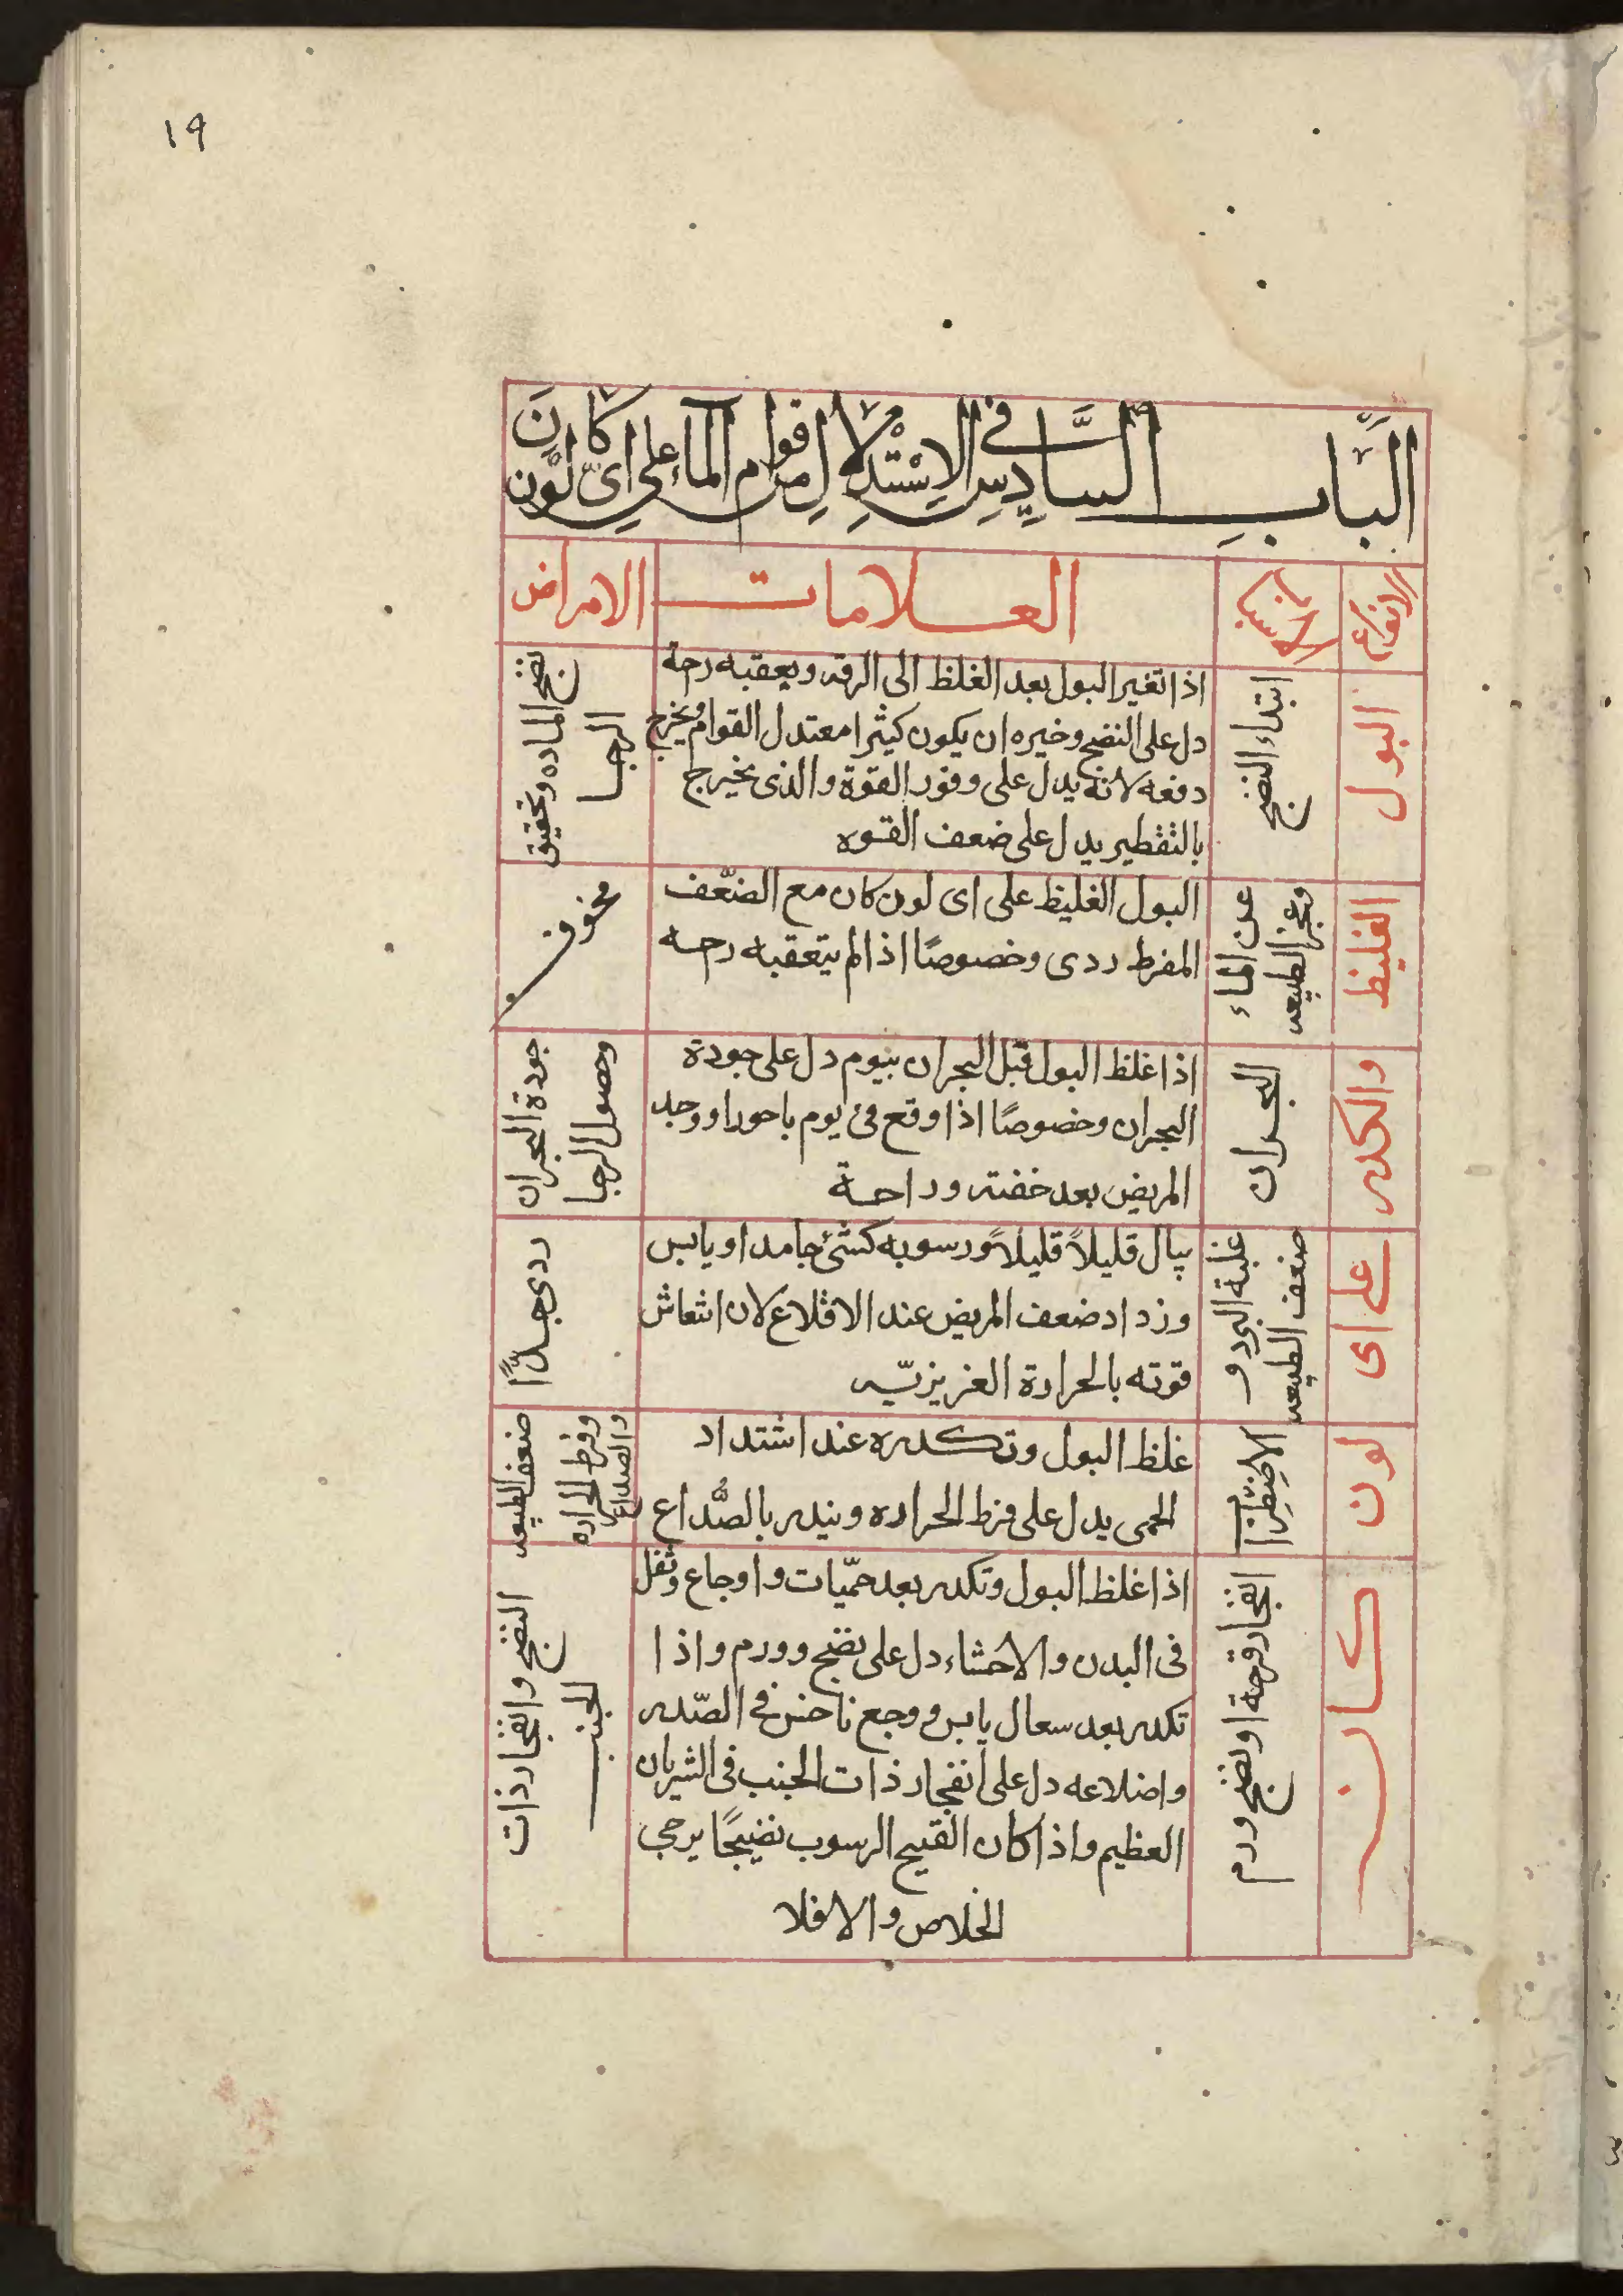 ١٩
الباب السادس في الاستدلال من قوام الماء على اي لون كان
الانواع
العلامات
الامراض
البول
ابتداء النضج
اذا تغير البول بعد الغلظ الى الرقه ويعقبه رحة
دل على النضج وخيره ان يكون كثيرا معتدل القوام ويخرج
دفعه لانه يدل على وفور القوة والذى يخيرج
بالتقطير يدل على ضعف القوه
نضج الماده وتحقيق
الرجا
الغليظ
عن الماء
وعجز الطبيعه
البول الغليظ على اى لون كان مع الضّعف
المفرط ردى وخصوصًا اذا لم يتعقبه رحه
مخوف
والكدر
البحران
اذا غلظ البول قبل البحران بيوم دل على جودة
البحران وخصوصًا اذا وقع فى يوم باحورا ووجد
المريض بعد خفته وراحة
جودة البحران
وحصول الرجا
على اى
غلبة البرد و
ضعف الطبيعه
يبال قليلاً قليلاً ورسوبه كشئ جامد او يابس
وزداد ضعف المريض عند الاقلاع لان انتعاش
قوته بالحرارة الغريزيّه
ردى جدًّا
لون
الاضطراب
غلظ البول وتكدره عند اشتداد
الحمى يدل على فرط الحراره وينذر بالصُّداع
ضعف الطبيعه
وفرط الحراره
والصداع
كان
انفجار قرحة او نضج ورم
اذا غلظ البول وتكدر بعد حمّيات واوجاع وثقل
فى البدن والاحشاء دل على نضج وورم واذا
تكدر بعد سعال يابس ووجع ناخس فى الصّدر
واضلاعه دل على انفجار ذات الجنب فى الشريان
العظيم واذا كان القيح الرسوب نضيجًا يرجى
الخلاص والا فلا
النضج وانفجار ذات
الجنب